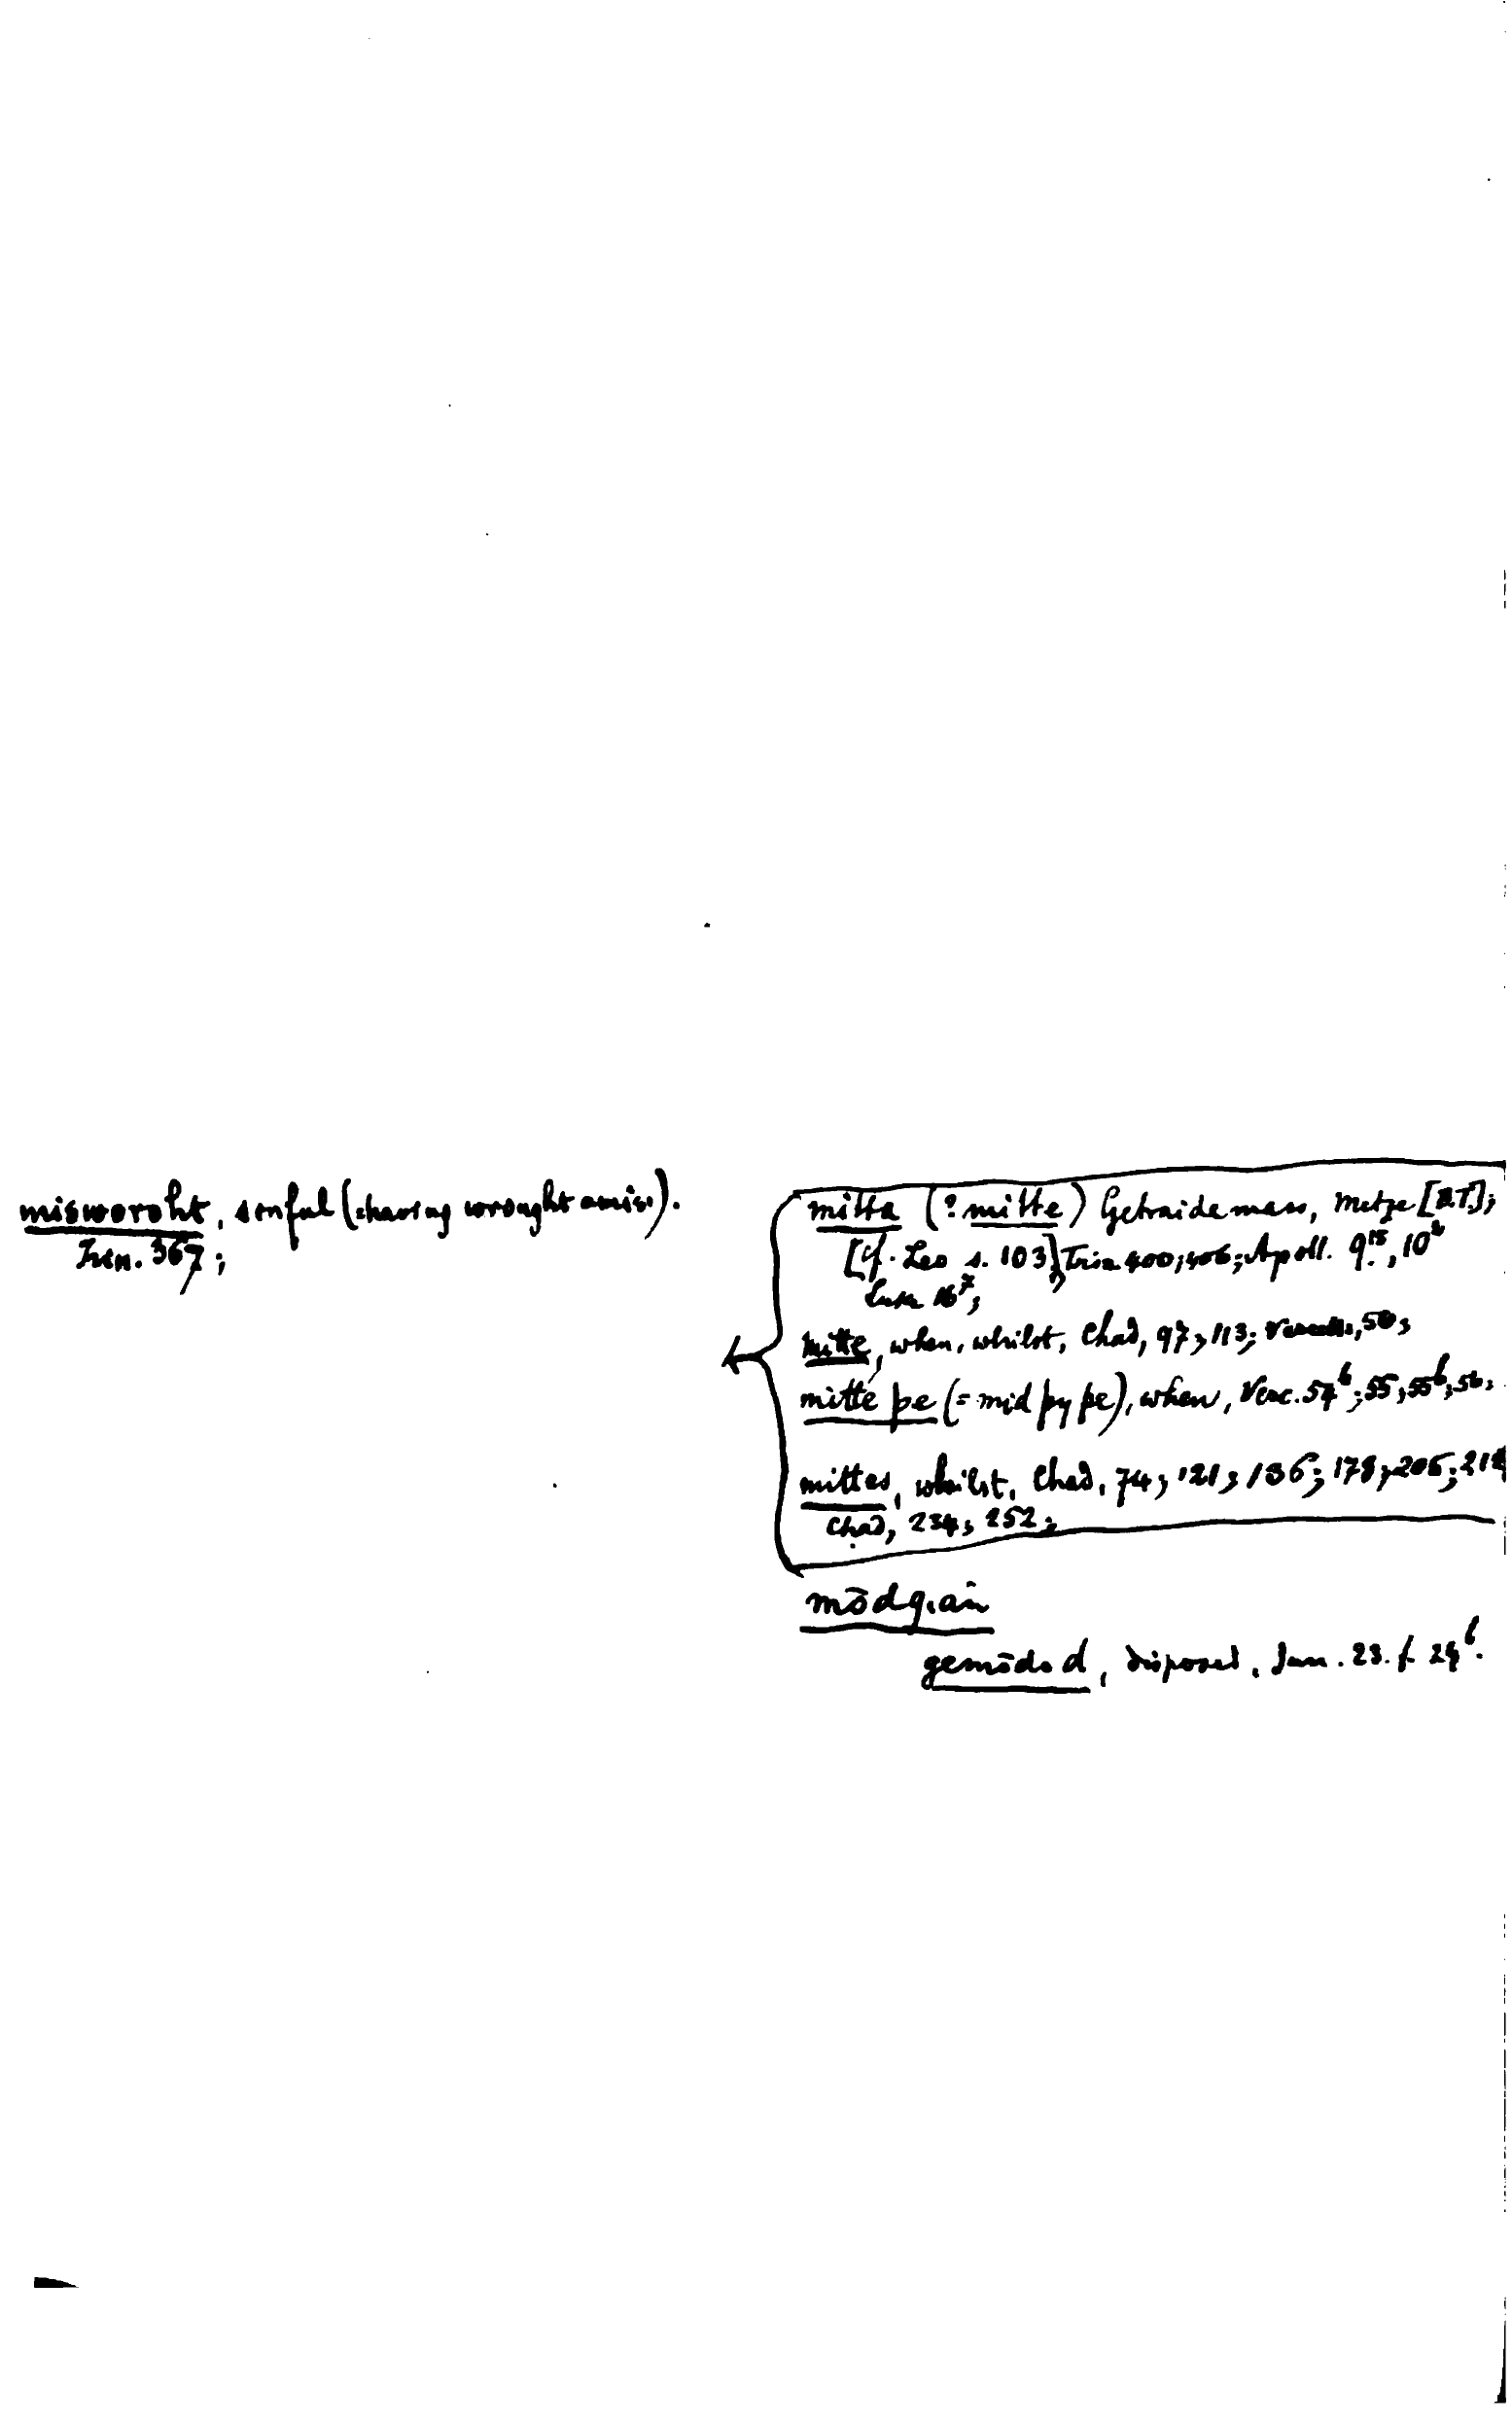 misworoht, sinful (having wrought amiss).
367;
mitta (? mitte) Getraidemass, Metze [B.T.];
[cf. Leo s. 103] Trin. 400; 406; Apoll. 9¹⁵, 10²
16⁷;
mitte, when, whilst, Chad, 97; 113; 50;
mitte þe (= mid þy þe), when, Verc. 54ᵇ; 55; 55ᵇ; 56;
mittes, whilst, Chad, 74; 121; 136; 178; 206; 218
Chad, 234; 252;
mōdgian
gemōdod, disposed, 23. f. 24ᵇ.